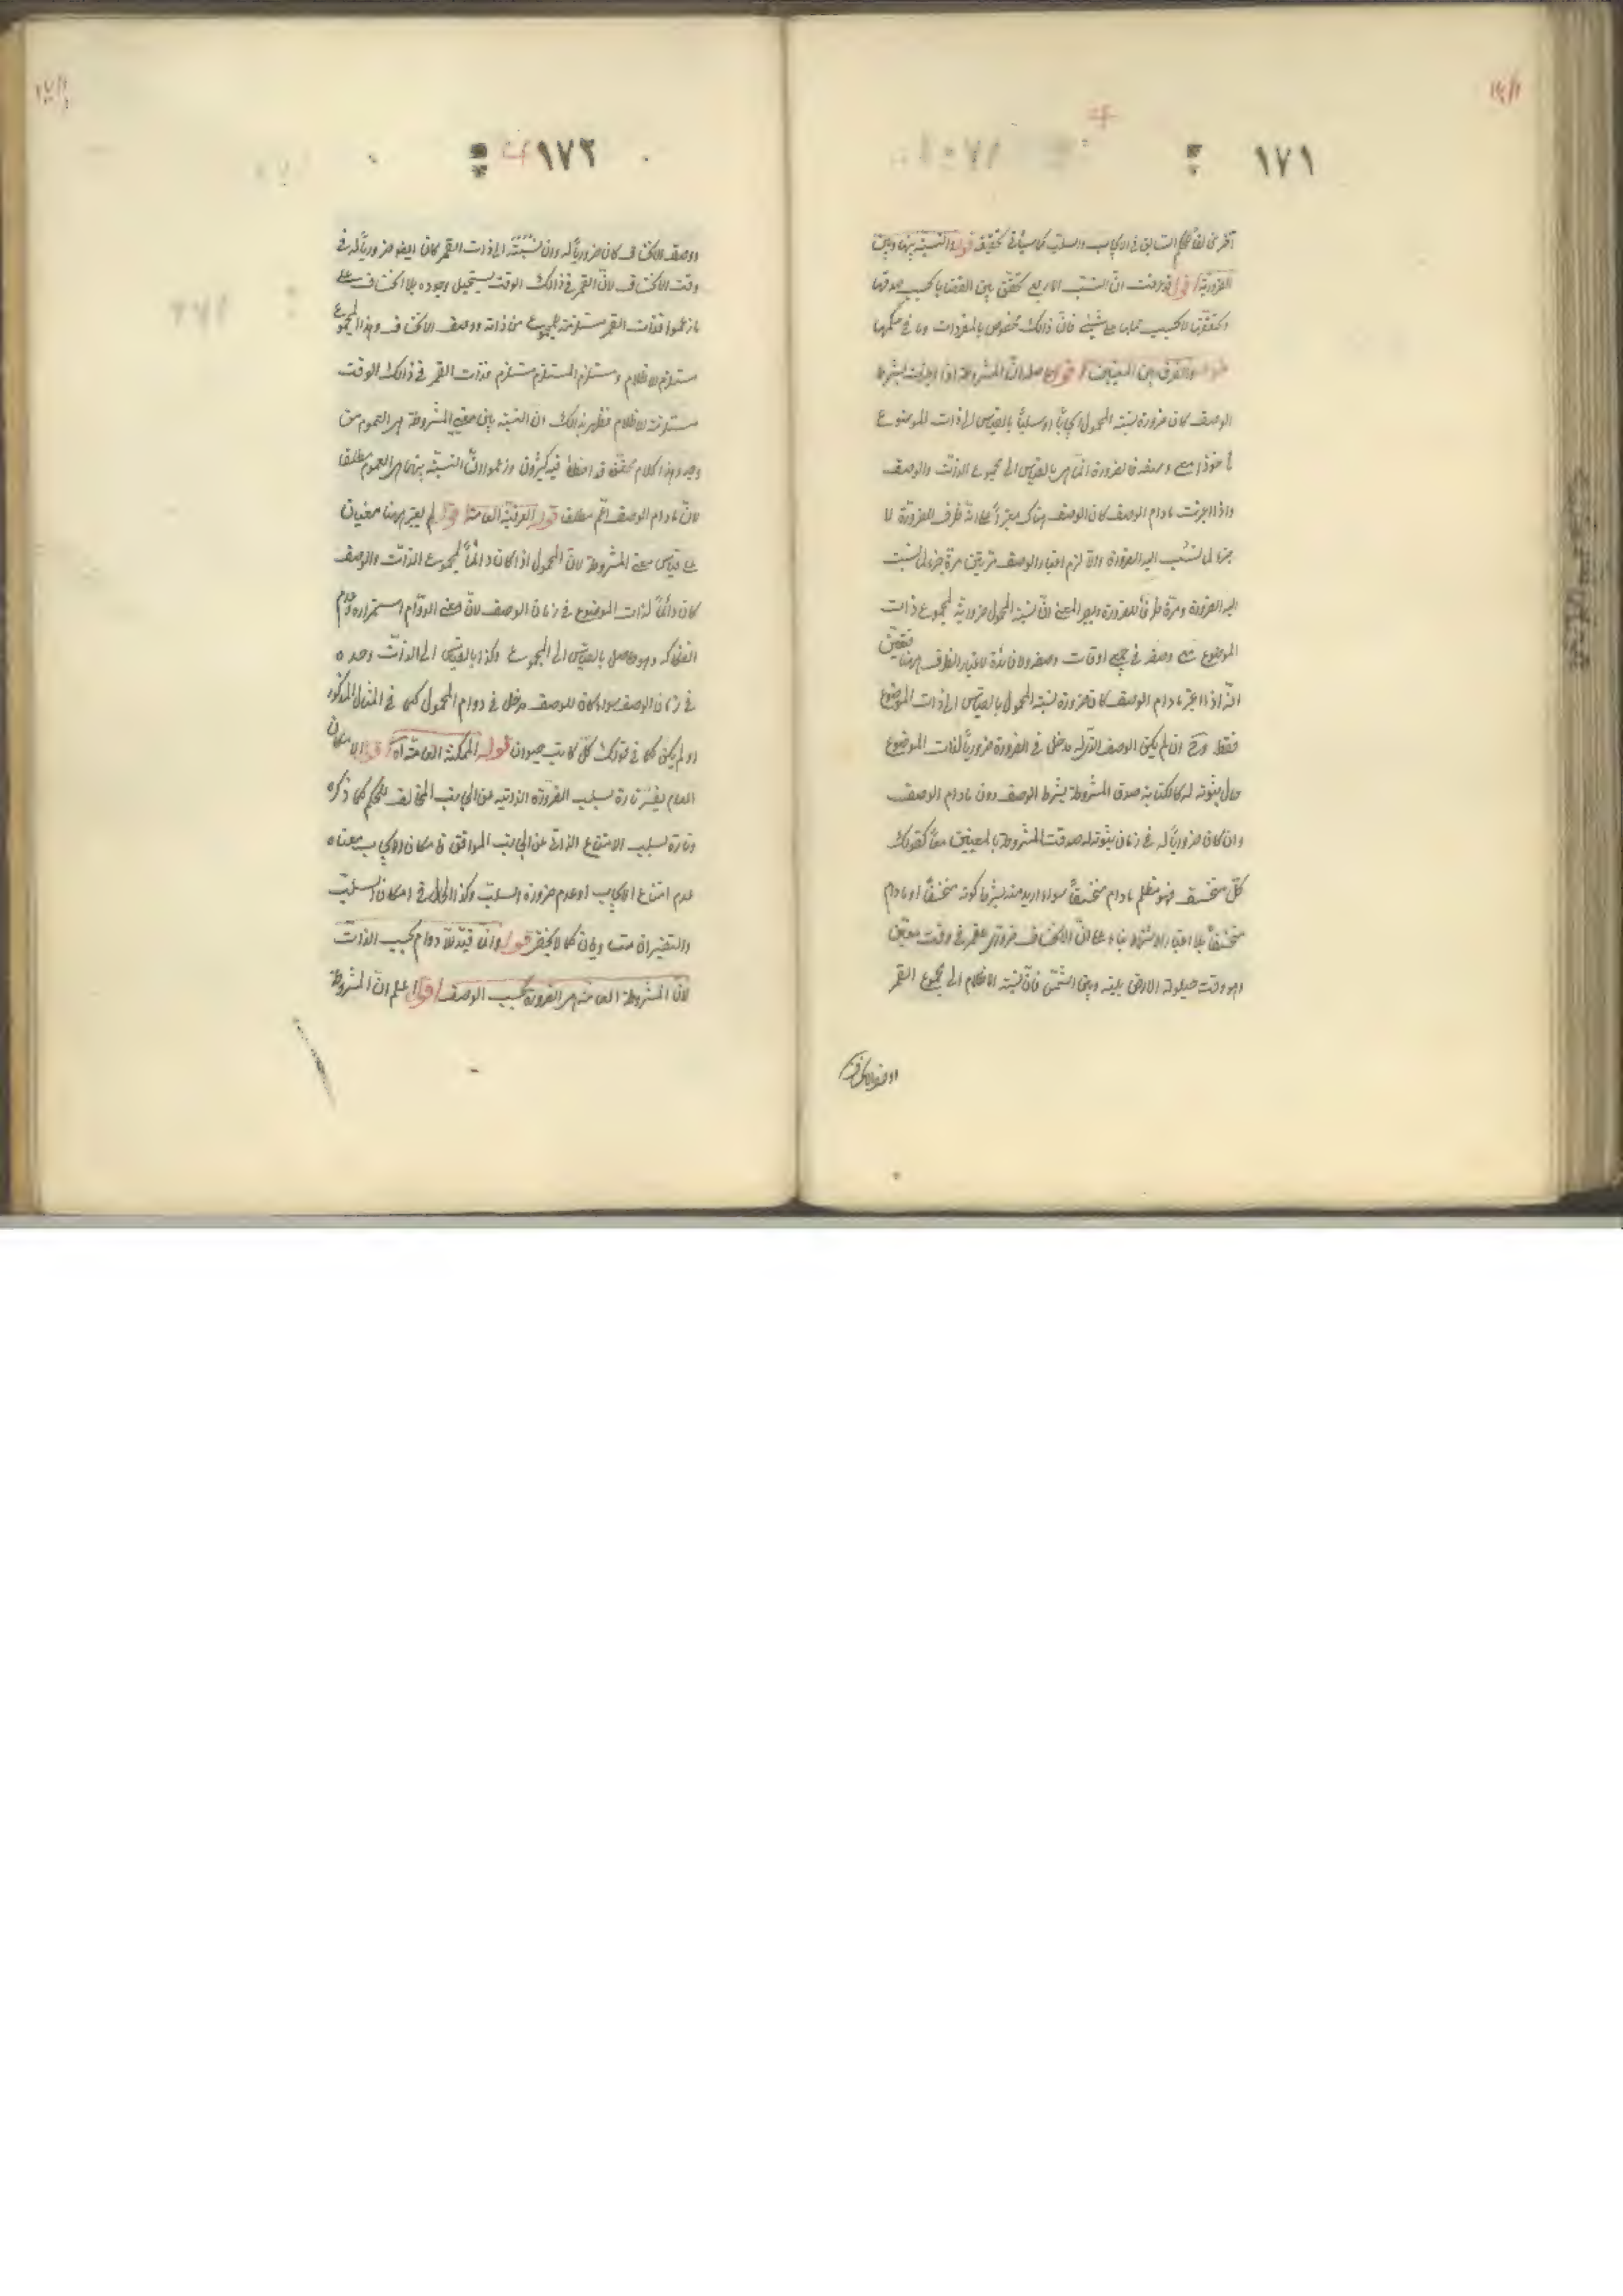 ١٧١
آخر مخالفا للحكم السابق في الايجاب والسلب كما سيأتي تحقيقه قوله والنسبة بينها وبين
الضرورية / قول قد عرفت انّ النسب الاربع تتحقق بين القضايا بحسب صدقها
وتحققها لا بحسب حملها على شيء فانّ ذلك مخصوص بالمفردات وما في حكمها
والفرق بين المعنيين / قول حاصله انّ المشروطة اذا اخذت بشرط
الوصف كان ضرورة نسبة المحمول ايجاباً او سلباً بالقياس الى ذات الموضوع
مأخوذا مع وصفه فالضرورة انما هي بالقياس الى مجموع الذات والوصف
واذا اخذت مادام الوصف كان الوصف هناك معتبراً على انه ظرف للضرورة لا
جزء لما نسب اليه الضرورة والا لزم اعتبار الوصف مرتين مرة جزء لما نسب
اليه الضرورة ومرة ظرفا للضرورة ويصير المعنى انّ نسبة المحمول ضرورية لمجموع ذات
الموضوع مع وصفه في جميع اوقات وصفه ولا فائدة لاعتبار الظرف ههنا فتعيّن
انه اذا اعتبر مادام الوصف كان ضرورة نسبة المحمول بالقياس الى ذات الموضوع
فقط وح ان لم يكن الوصف الذي له مدخل في الضرورة ضرورياً لذات الموضوع
حال ثبوته له كالكتابة صدق المشروطة بشرط الوصف دون مادام الوصف
وان كان ضرورياً له في زمان ثبوته له صدقت المشروطة بالمعنيين معاً كقولك
كل منخسف فهو مظلم مادام منخسفاً سواء اريد منه بشرط كونه منخسفاً او مادام
منخسفاً بلا اعتبار الاشتراط بناء على انّ الانخساف ضروري للقمر في وقت معين
وهو وقت حيلولة الارض بينه وبين الشمس فانّ نسبة الاظلام الى مجموع القمر
ووصف الانخساف
١٧٢
ووصف الانخساف كان ضرورياً له وان نسبته الى ذات القمر كان ايضا ضرورياً له في
وقت الانخساف لانّ القمر في ذلك الوقت يستحيل وجوده بلا انخساف على
ما زعموا فذات القمر مستلزمة لمجموع من ذاته ووصف الانخساف وهذا المجموع
مستلزم للاظلام ومستلزم المستلزم مستلزم فذات القمر في ذلك الوقت
مستلزمة للاظلام فظهر بذلك ان النسبة بين معنيي المشروطة هي العموم من
وجه وهذا كلام محقق قد اخطأ فيه كثيرون وزعموا انّ النسبة بينهما هي العموم مطلقا
لانّ مادام الوصف اعم مطلقا قوله العرفية العامة / قول لم يعتبر ههنا معنيان
على قياس معنى المشروطة لانّ المحمول اذا كان دائماً لمجموع الذات والوصف
كان دائماً لذات الموضوع في زمان الوصف لانّ معنى الدوام استمراره وعدم
انفكاكه وهو حاصل بالقياس الى المجموع وكذا بالقياس الى الذات وحده
في زمان الوصف سواء كان للوصف مدخل في دوام المحمول كما في المثال المذكور
او لم يكن كما في قولك كل كاتب حيوان قوله الممكنة العامة اه / قول الامكان
العام يفسّر تارة بسلب الضرورة الذاتية عن الجانب المخالف للحكم كما ذكره
وتارة بسلب الامتناع الذاتي عن الجانب الموافق فامكان الايجاب معناه
عدم امتناع الايجاب او عدم ضرورة السلب وكذا الحال في امكان السلب
والتفسيران متساويان كما لا يخفى قوله وانما قيّد اللا دوام بحسب الذات
لانّ المشروطة العامة هي الضرورة بحسب الوصف / قول اعلم انّ المشروطة